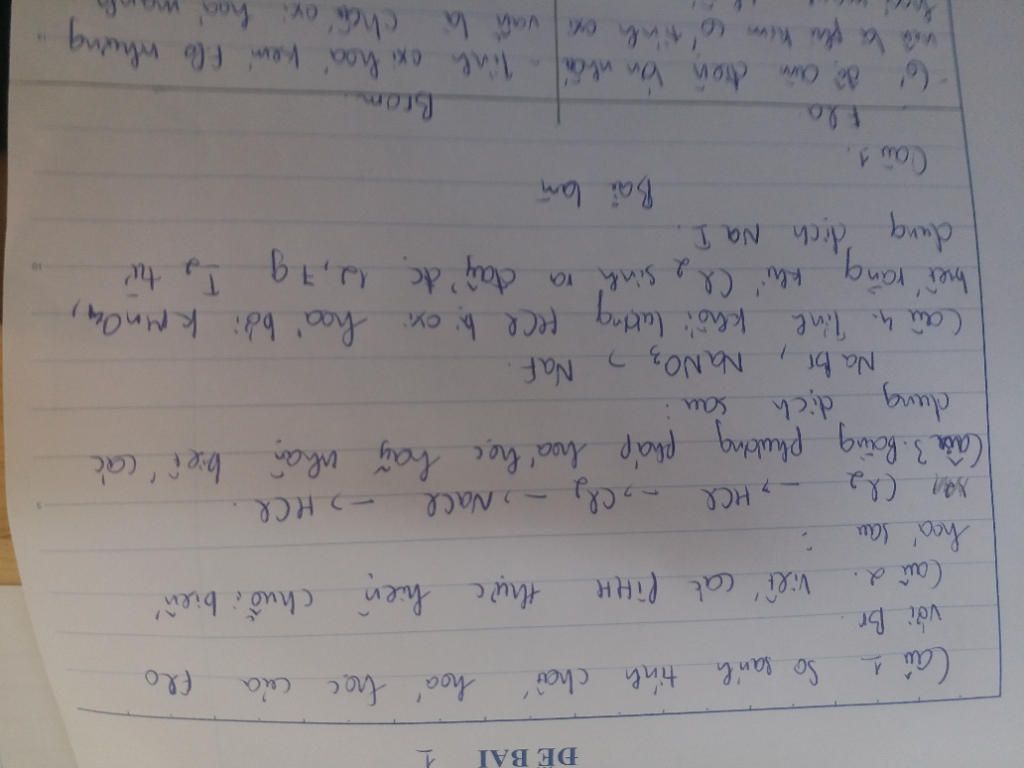 ĐỀ BÀI 1
Câu 1 - So sánh tính chất hoá học của Flo
với Br
Câu 2. Viết các PTHH thực hiện chuỗi biến
hoá sau :
Cl2 -> HCl -> Cl2 -> NaCl -> HCl.
Câu 3. Bằng phương pháp hoá học hãy nhận biết các
dung dịch sau :
NaBr, NaNO3, NaF.
Câu 4. Tính khối lượng HCl bị oxi hoá bởi KMnO4,
biết rằng khí Cl2 sinh ra đẩy đc 12,7g I2 từ
dung dịch NaI.
Bài làm
Câu 1.
Flo Brom
- Có độ âm điện lớn nhất - Tính oxi hoá kém Flo nhưng
nên là phi kim có tính oxi vẫn là chất oxi hoá mạnh